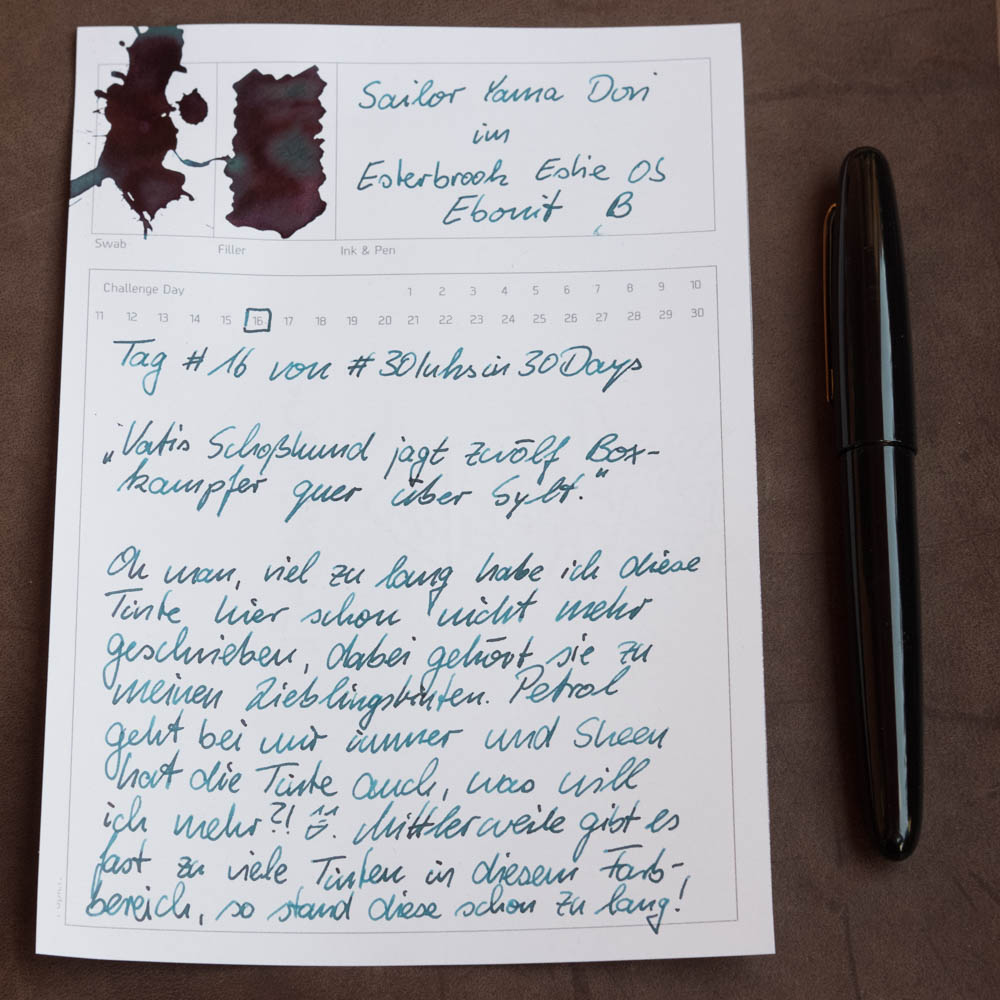 Sailor Yama Dori
im
Esterbrook Estie OS
Ebonit B
Swab
Filler
Ink & Pen
Challenge Day
1 2 3 4 5 6 7 8 9 10
11 12 13 14 15 16 17 18 19 20 21 22 23 24 25 26 27 28 29 30
Tag #16 von #30Inksin30Days
„Vatis Schoßhund jagt zwölf Box-
kampfer quer über Sylt."
Oh man, viel zu lang habe ich diese
Tinte hier schon nicht mehr
geschrieben, dabei gehört sie zu
meinen Lieblingstinten. Petrol
geht bei mir immer und Sheen
hat die Tinte auch, was will
ich mehr?! ^^. Mittlerweile gibt es
fast zu viele Tinten in diesem Farb-
bereich, so stand diese schon zu lang!